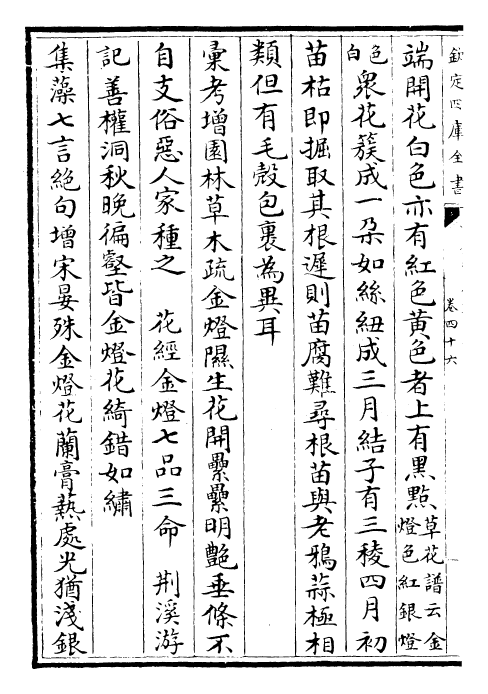 欽定四庫全書
卷四十六
端開花白色亦有紅色黄色者上有黑㸃草花譜云金燈色紅銀燈
色白衆花簇成一朶如絲紐成三月結子有三稜四月初
苗枯即掘取其根遲則苗腐難尋根苗與老鴉蒜極相
類但有毛殻包裹為異耳
彚考增園林草木疏金燈隰生花開纍纍明艶垂條不
自支俗惡人家種之　花經金燈七品三命　荆溪游
記善權洞秋晩徧壑皆金燈花綺錯如繡
集藻七言絶句增宋晏殊金燈花蘭膏爇處光猶淺銀